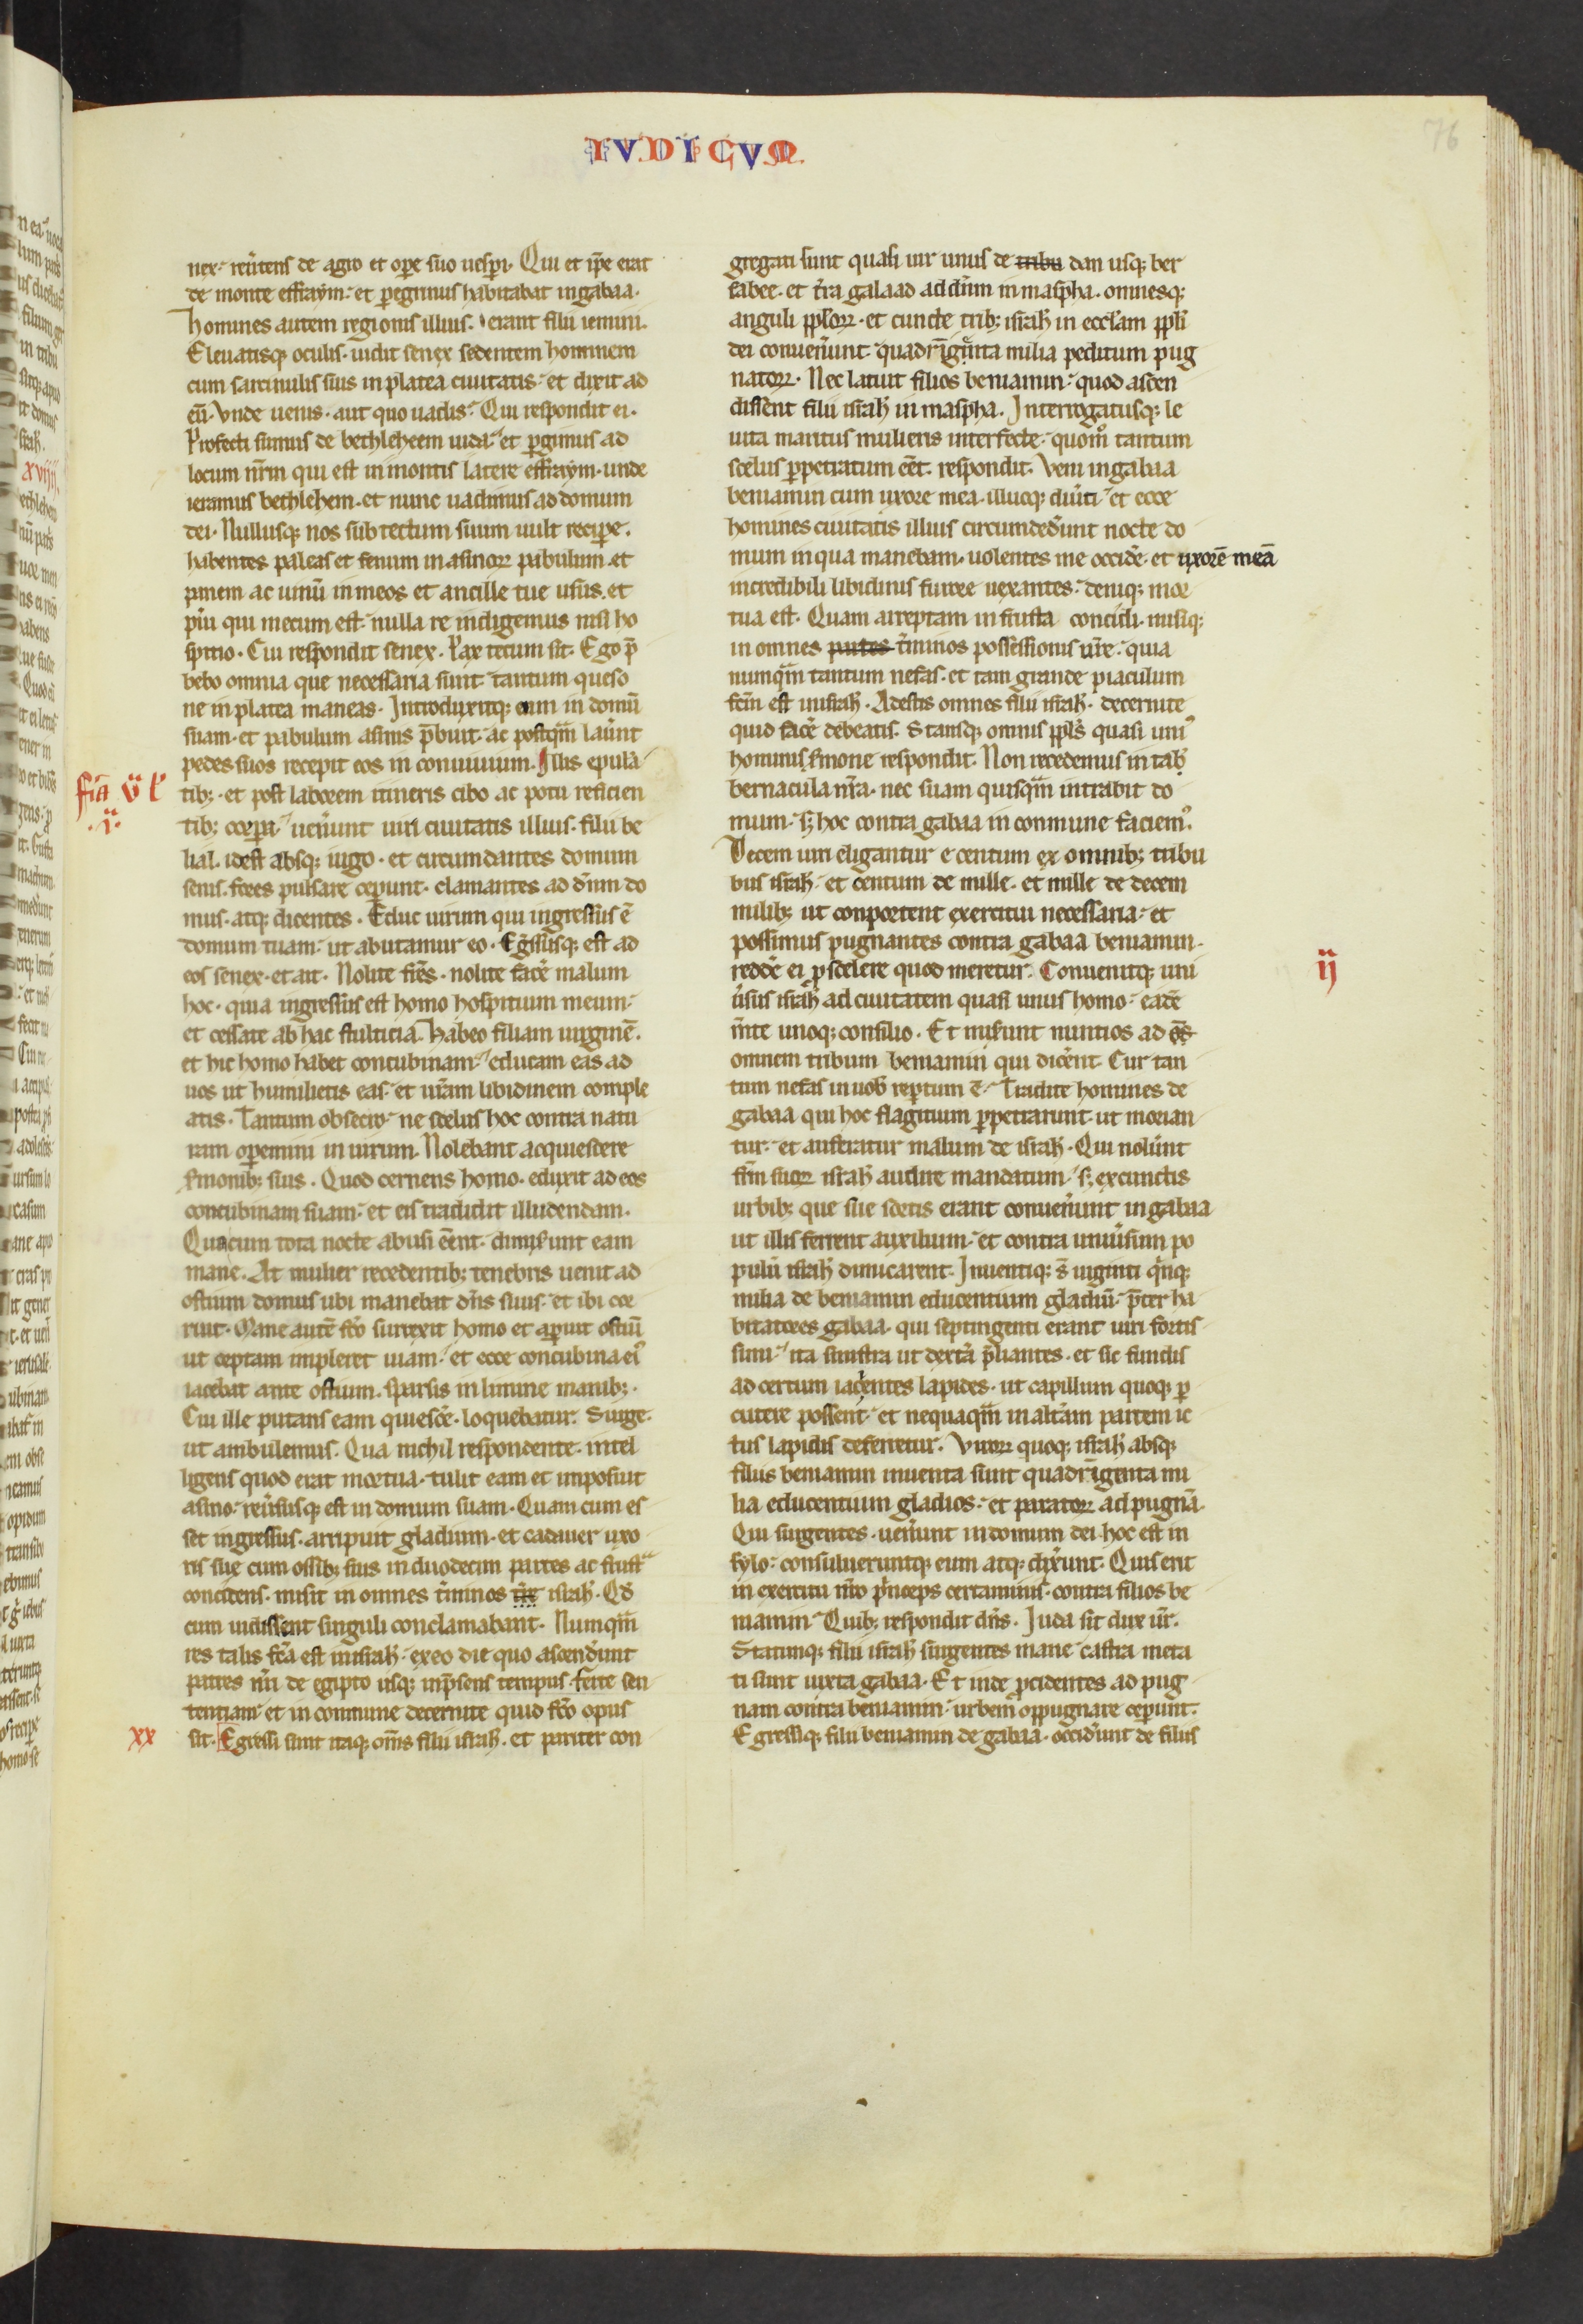 IVDICVM
76
nex· reũtens de agro et oꝑe suo uesꝑi· Qui et ip̄e erat
de monte effraym· et ꝑegrinus habitabat in gabaa·
homines autem regionis illius· erant filii iemini·
Eleuatisq; oculis· uidit senex sedentem hominem
cum sarcinulis suis in platea ciuitatis· et dixit ad
eū· Vnde uenis· aut quo uadis· Qui respondit ei·
Profecti sumus de bethleheem iuda· et ꝑgimus ad
locum nr̄m qui est in montis latere effraym· unde
ieramus bethlehem· et nunc uadimus ad domum
dei· Nullusq; nos sub tectum suum uult reciꝑe·
habentes paleas et fenum in asinoꝝ pabulum· et
panem ac uinū in meos et ancille tue usus· et
pu̾i qui mecum est· nulla re indigemus nisi ho
spitio· Cui respondit senex· Pax tecum sit· Ego p̄
bebo omnia que necessaria sunt· tantum queso
ne in platea maneas· Introduxitq; eum in domū
suam· et pabulum asinis p̄buit· ac postqm̄ lau̾nt
pedes suos recepit eos in conuiuium· Illis epulā
fr̄a v̄ l'
·ī·
tib;· et post laborem itineris cibo ac potu reficien
tib; corꝑa· uen̾unt uiri ciuitatis illius· filii be
lial· idest absq; iugo· et circumdantes domum
senis· fores pulsare ceꝑunt· clamantes ad dn̄m do
mus· atq; dicentes· Educ uirum qui ingressus ē
domum tuam· ut abutamur eo· Eg̾ssusq; est ad
eos senex· et ait· Nolite fr̄es· nolite face̾ malum
hoc· quia ingressus est homo hospitium meum·
et cessate ab hac stulticia· Habeo filiam uirginē·
et hic homo habet concubinam· educam eas ad
uos ut humilietis eas· et ur̄am libidinem comple
atis· Tantum obsecro· ne scelus hoc contra natu
ram oꝑemini in uirum· Nolebant acquiescere
s̾monib; suis· Quod cernens homo· eduxit ad eos
concubinam suam· et eis tradidit illudendam·
Quacum tota nocte abusi eēnt· dimis̾unt eam
mane· At mulier recedentib; tenebris uenit ad
ostium domus ubi manebat dn̄s suus· et ibi cor
ruit· Mane autē fc̄o surrexit homo et aꝑuit ostiū
ut ceptam impleret uiam· et ecce concubina ei᾽
iacebat ante ostium· sparsis in limine manib;·
Cui ille putans eam quiesce̾· loquebatur· Surge·
ut ambulemus· Qua nichil respondente· intel
ligens quod erat mortua· tulit eam et imposuit
asino· reu̾susq; est in domum suam· Quam cum es
set ingressus· arripuit gladium· et cadauer uxo
ris sue cum ossib; suis in duodecim partes ac frustᵃ
concidens· misit in omnes t̾minos isrl̄· Qd̄
cum uidissent singuli conclamabant· Numqm̄
res talis fc̄a est in isrl̄· ex eo die quo ascend̾unt
patres nr̄i de egipto usq; in p̄sens tempus· ferte sen
tentiam· et in commune decernite quid fc̄o opus
xx
sit· Egressi sunt itaq; om̄s filii isrl̄· et pariter con
gregati sunt quasi uir unus de tribu dan usq; ber
sabee· et t̾ra galaad ad dn̄m in maspha· omnesq;
anguli ppl̄oꝝ· et cuncte trib; isrl̄ in eccl̄am ppl̄i
dei conuen̾unt· quadrīgēnta milia peditum pug
natoꝝ· Nec latuit filios beniamin· quod ascen
dissent filii isrl̄ in maspha· Interrogatusq; le
uita maritus mulieris interfecte· quom̊ tantum
scelus ꝑpetratum eēt· respondit· Veni in gabaa
beniamin cum uxore mea· illucq; diu̾ti· et ecce
homines ciuitatis illius circumded̾unt nocte do
mum in qua manebam· uolentes me occide̾· et uxorē meā
incredibili libidinis furore uexantes· deniq; mor
tua est· Quam arreptam in frusta concidi· misiq;
in omnes partes t̾minos possessionis ur̄e· quia
numqm̄ tantum nefas· et tam grande piaculum
fc̄m est in isrl̄· Adestis omnes filii isrl̄· decernite
quid face̾ debeatis· Stansq; omnis ppl̄s quasi uni᾽
hominis s̾mone respondit· Non recedemus in tab̾
bernacula nr̄a· nec suam quisqm̄ intrabit do
mum· s; hoc contra gabaa in commune faciem᾽·
Decem uiri eligantur e centum ex omnib; tribu
bus isrl̄· et centum de mille· et mille de decem
milib; ut comportent exercitui necessaria· et
possimus pugnantes contra gabaa beniamin·
redde̾ ei ꝓ scelere quod meretur· Conuenitq; uni
ij
u̾sus isrl̄ ad ciuitatem quasi unus homo· eadē
m̄te unoq; consilio· Et mis̾unt nuntios ad oēs
omnem tribum beniamin qui dice̾nt· Cur tan
tum nefas in uob̾ reꝑtum ē· Tradite homines de
gabaa qui hoc flagitium ꝑpetrarunt· ut morian
tur· et auferatur malum de isrl̄· Qui nolu̾nt
fr̄m suoꝝ isrl̄ audire mandatum· s; ex cunctis
urbib; que sue sortis erant conuen̾unt in gabaa
ut illis ferrent auxilium· et contra uniu̾sum po
pulū isrl̄ dimicarent· Inuentiq; s̄ uiginti qⁱnq;
milia de beniamin educentium gladiū· p̄ter ha
bitatores gabaa· qui septingenti erant uiri fortis
simi· ita sinistra ut dextᵃ p̄liantes· et sic fundis
ad certum iacientes lapides· ut capillum quoq; ꝑ
cutere possent· et nequaqm̄ in alt̾am partem ic
tus lapidis deferretur· Viroꝝ quoq; isrl̄ absq;
filiis beniamin inuenta sunt quadrīgenta mi
lia educentium gladios· et paratoꝝ ad pugnā·
Qui surgentes· uen̾unt in domum dei· hoc est in
sylo· consulueruntq; eum atq; dix̾unt· Quis erit
in exercitu nr̄o pⁱnceps certaminis· contra filios be
niamin· Quib; respondit dn̄s· Iuda sit dux ur̄·
Statimq; filii isrl̄ surgentes mane· castra meta
ti sunt iuxta gabaa· Et inde ꝓcidentes ad pug
nam contra beniamin· urbem oppugnare ceꝑunt·
Egressiq; filii beniamin de gabaa· occid̾unt de filiis